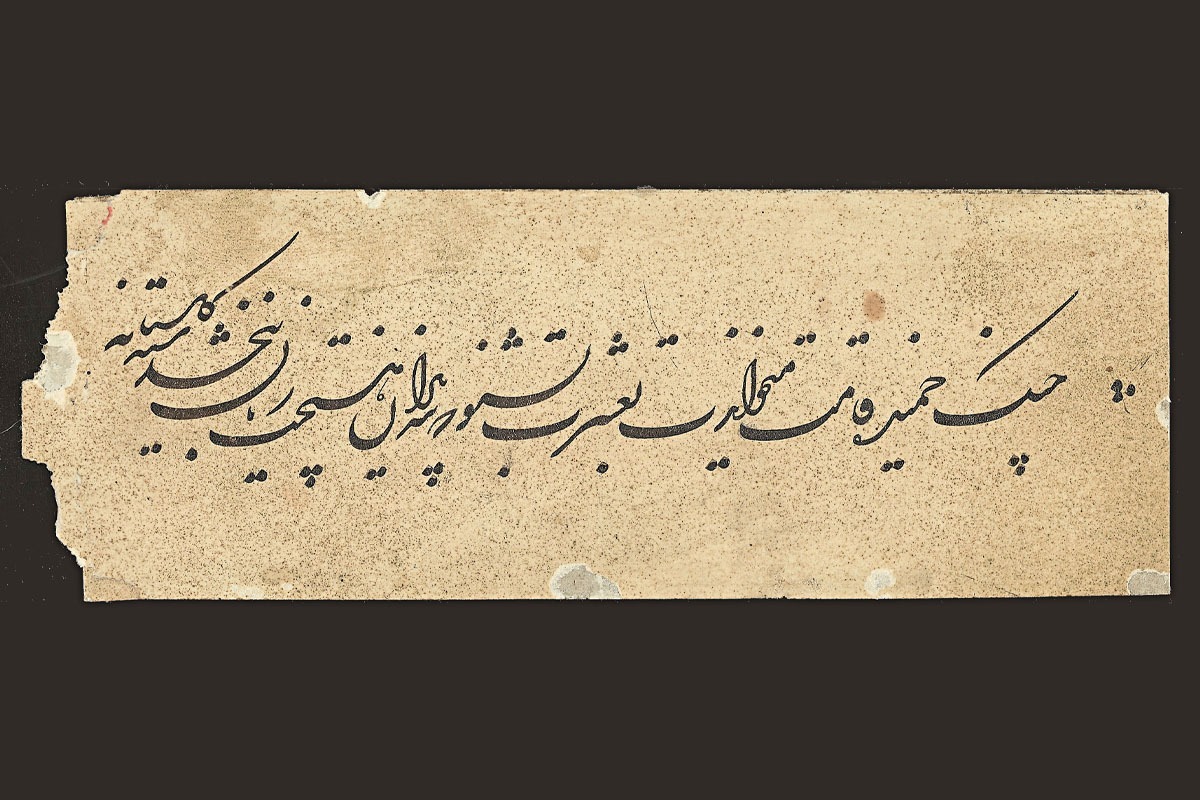 چنگ خمیده قامت میخواندت بعشرت بشنو که پند پیران هیچت زیان